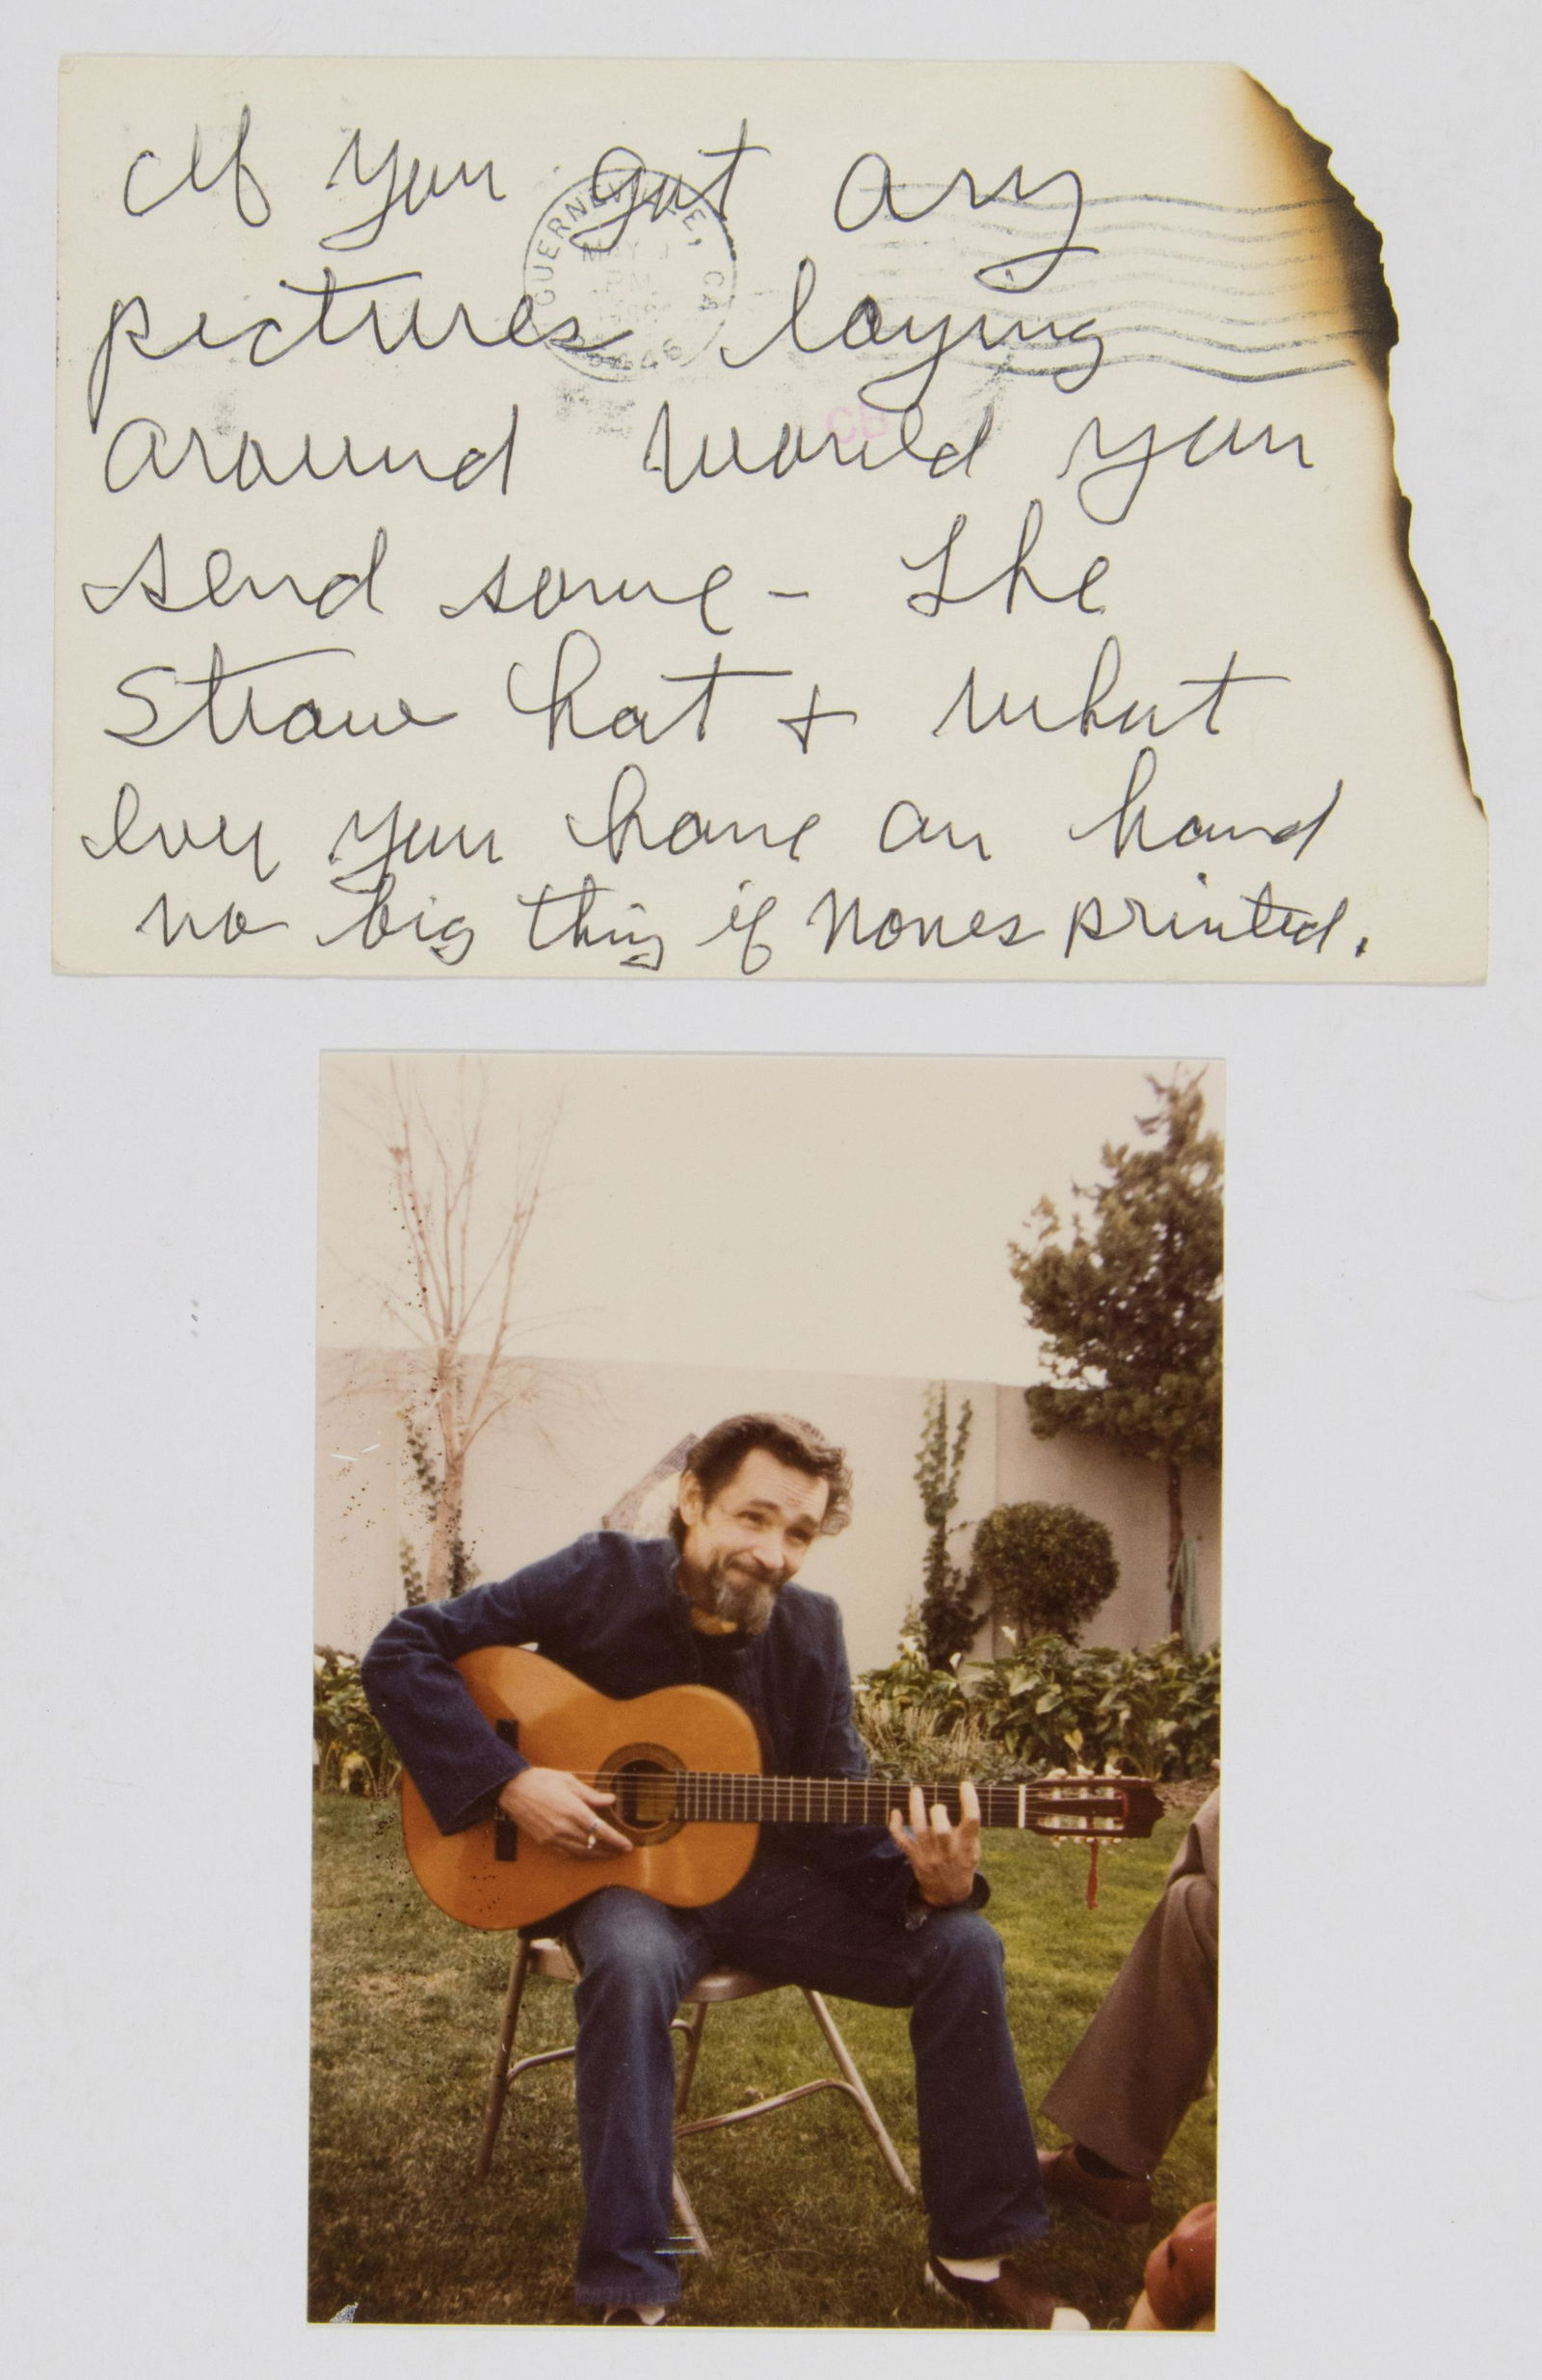 If you got any
pictures laying
around would you
send some - The
Straw hat + what
ever you have on hand
no big thing if nones printed.
GUERNEVILLE, CA
MAY
PM
95446